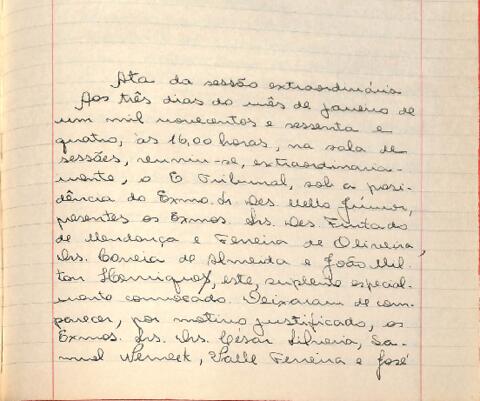 Ata da sessão extraordinária
Aos três dias do mês de janeiro de
um mil novecentos e sessenta e
quatro, às 16,00 horas, na sala de
sessões, reuniu-se, extraordinaria-
mente, o E Tribunal, sob a presi-
dência do Exmo. Sr. Des. Mello Júnior,
presentes os Exmos. Srs. Des. Furtado
de Mendonça e Ferreira de Oliveira,
Drs. Correia de Almeida e João Mil
ton Henriques, este, suplente especial-
mente convocado. Deixaram de com-
parecer, por motivo justificado, os
Exmos. Srs. Drs. César Silveira, Sa-
muel Werneck, Valle Ferreira e José